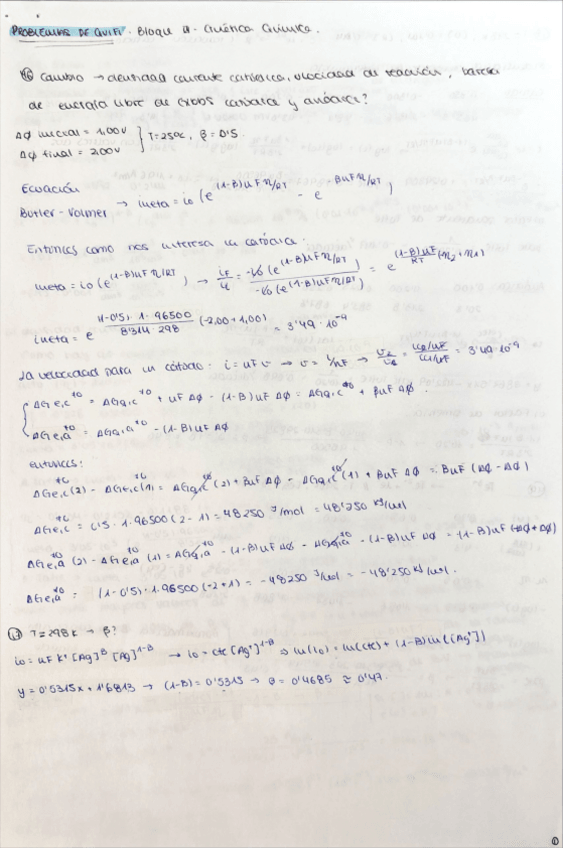 PROBLEMAS DE QUIFI. Bloque II - Cinética Química.
16 Cambio → densidad corriente catódica, velocidad de reacción, barrera
de energía libre de Gibbs catódica y anódica?
ΔΦ inicial = 1,00V } T=25ºC, β = 0'5.
ΔΦ final = 2,00V
Ecuación
Butler-Volmer → ineta = i₀ (e^(1-β)nFη/RT - e^-βnFη/RT)
Entonces como nos interesa la catódica:
ineta = i₀ (e^(1-β)nFη/RT) → = -i₀ (e^(1-β)nFη/RT) / -i₀ (e^(1-β)nFη/RT) = e^(1-β)nF/RT (η₂+η₁)
ineta = e^(1-0'5)·1·96500/8'314·298 (-2,00+1,00) = 3'49·10⁻⁹
La velocidad para un cátodo: i = nFv → v = i/nF → = 3'49·10⁻⁹
{ ΔGe,c^‡0 = ΔGq,c^‡0 + nFΔΦ - (1-β)nFΔΦ = ΔGq,c^‡0 + βnFΔΦ.
ΔGe,a^‡0 = ΔGq,a^‡0 - (1-β)nFΔΦ
entonces:
ΔGe,c^‡0(2) - ΔGe,c^‡0(1) = ΔGq,c^‡0(2) + βnFΔΦ - ΔGq,c^‡0(1) + βnFΔΦ = βnF(ΔΦ - ΔΦ)
ΔGe,c^‡0 = 0'5·1·96500(2-1) = 48250 J/mol = 48'250 kJ/mol
ΔGe,a^‡0(2) - ΔGe,a^‡0(1) = ΔGq,a^‡0 - (1-β)nFΔΦ - ΔGq,a^‡0 - (1-β)nFΔΦ = (1-β)nF(-ΔΦ+ΔΦ)
ΔGe,a^‡0 = (1-0'5)·1·96500(-2+1) = -48250 J/mol = -48'250 kJ/mol.
17 T=298K → β?
i₀ = nFK⁰[Ag]^β[Ag]^1-β → i₀ = cte[Ag⁺]^1-β ⇒ ln(i₀) = ln(cte) + (1-β)ln([Ag⁺])
y = 0'5315x + 1'6813 → (1-β) = 0'5315 → β = 0'4685 ≈ 0'47.